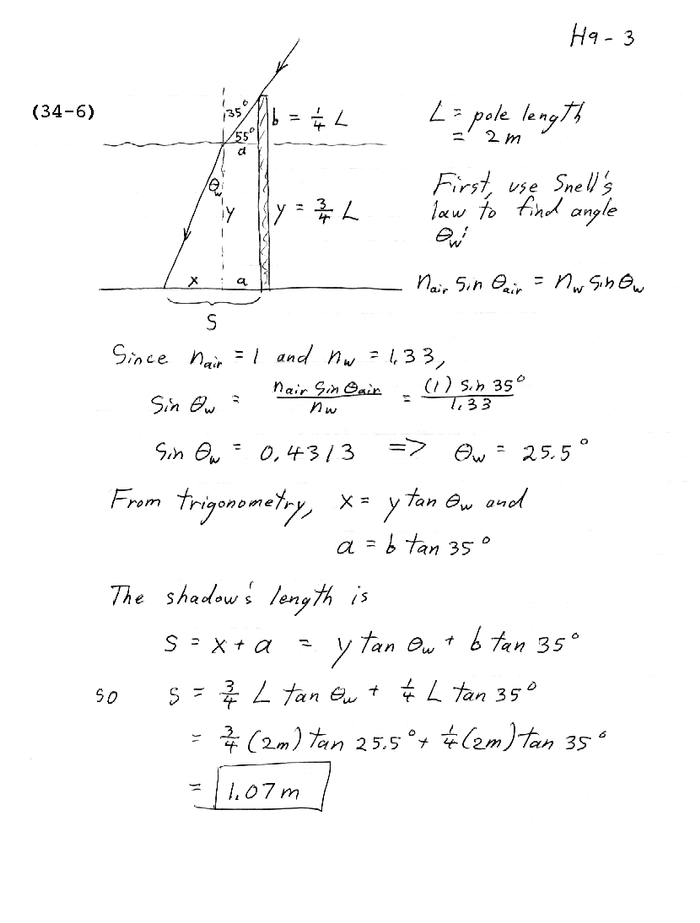 H9-3
(34-6)
35°
55°
a
b = 1/4 L
L = pole length
= 2m
θw
y
y = 3/4 L
First, use Snell's
law to find angle
θw:
x
a
S
nair sin θair = nw sin θw
Since nair = 1 and nw = 1.33,
sin θw = nair sin θair / nw = (1) sin 35° / 1.33
sin θw = 0.4313 => θw = 25.5°
From trigonometry, x = y tan θw and
a = b tan 35°
The shadow's length is
S = x + a = y tan θw + b tan 35°
so S = 3/4 L tan θw + 1/4 L tan 35°
= 3/4 (2m) tan 25.5° + 1/4 (2m) tan 35°
= 1.07 m